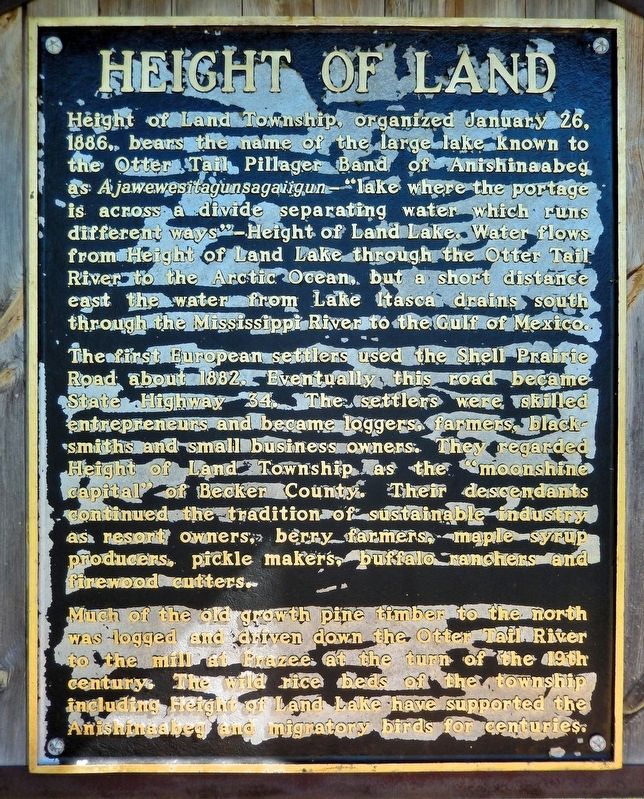 HEIGHT OF LAND
Height of Land Township, organized January 26,
1886, bears the name of the large lake known to
the Otter Tail Pillager Band of Anishinaabeg
as Ajawewesitagunsagaiigun—“lake where the portage
is across a divide separating water which runs
different ways”—Height of Land Lake. Water flows
from Height of Land Lake through the Otter Tail
River to the Arctic Ocean, but a short distance
east the water from Lake Itasca drains south
through the Mississippi River to the Gulf of Mexico.
The first European settlers used the Shell Prairie
Road about 1882. Eventually this road became
State Highway 34. The settlers were skilled
entrepreneurs and became loggers, farmers, black-
smiths and small business owners. They regarded
Height of Land Township as the “moonshine
capital” of Becker County. Their descendants
continued the tradition of sustainable industry
as resort owners, berry farmers, maple syrup
producers, pickle makers, buffalo ranchers and
firewood cutters.
Much of the old growth pine timber to the north
was logged and driven down the Otter Tail River
to the mill at Frazee at the turn of the 19th
century. The wild rice beds of the township
including Height of Land Lake have supported the
Anishinaabeg and migratory birds for centuries.